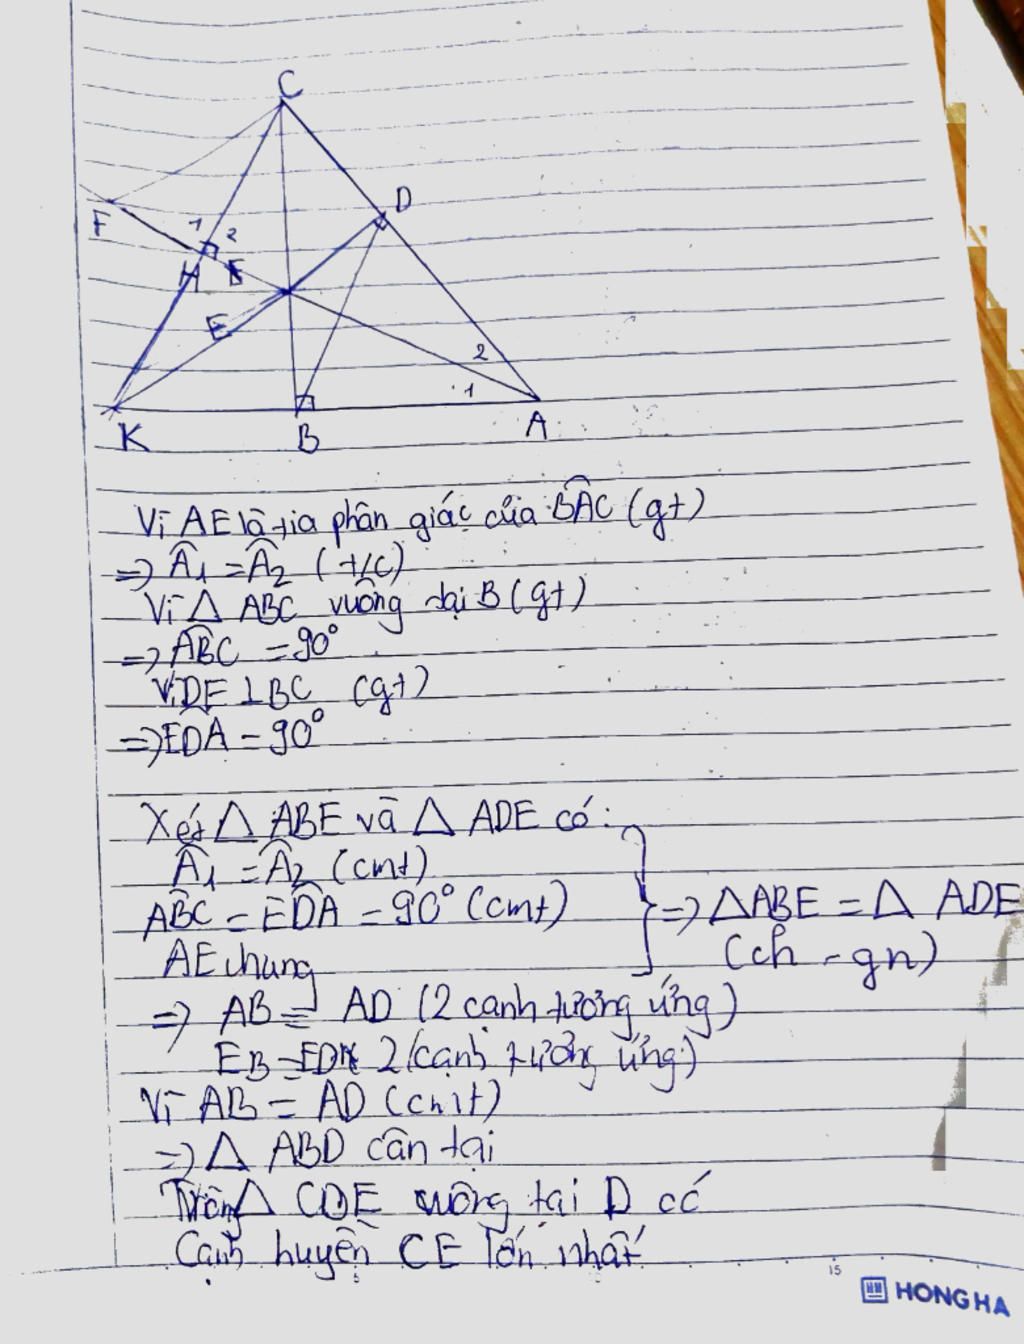 C
D
F
1
2
H
E
E
2
1
K
B
A
Vì AE là tia phân giác của BAC (gt)
=> A1 = A2 (t/c)
Vì △ ABC vuông tại B (gt)
=> ABC = 90°
Vì DE ⊥ BC (gt)
=> EDA = 90°
Xét △ ABE và △ ADE có:
A1 = A2 (cmt)
ABC = EDA = 90° (cmt)
AE chung
=> △ABE = △ ADE
(ch - gn)
=> AB = AD (2 cạnh tương ứng)
EB = ED 2 (cạnh tương ứng)
Vì AB = AD (cmt)
=> △ ABD cân tại
Trong △ CDE vuông tại D có
Cạnh huyền CE lớn nhất
15
HONG HA